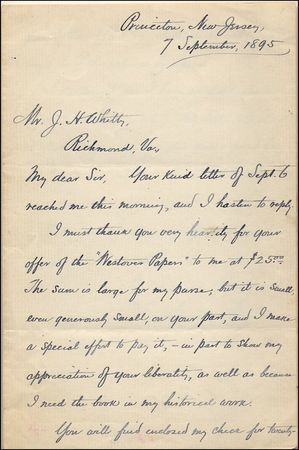 Princeton, New Jersey,
7 September, 1895
Mr. J. H. Whitty,
Richmond, Va,
My dear Sir, Your kind letter of Sept. 6
reached me this morning, and I hasten to reply.
I must thank you very heartily for your
offer of the "Westover Papers" to me at $25.00.
The sum is large for my purse; but it is small,
even generously small, on your part, and I make
a special effort to pay it, – in part to show my
appreciation of your liberality, as well as because
I need the book in my historical work.
You will find enclosed my check for twenty-